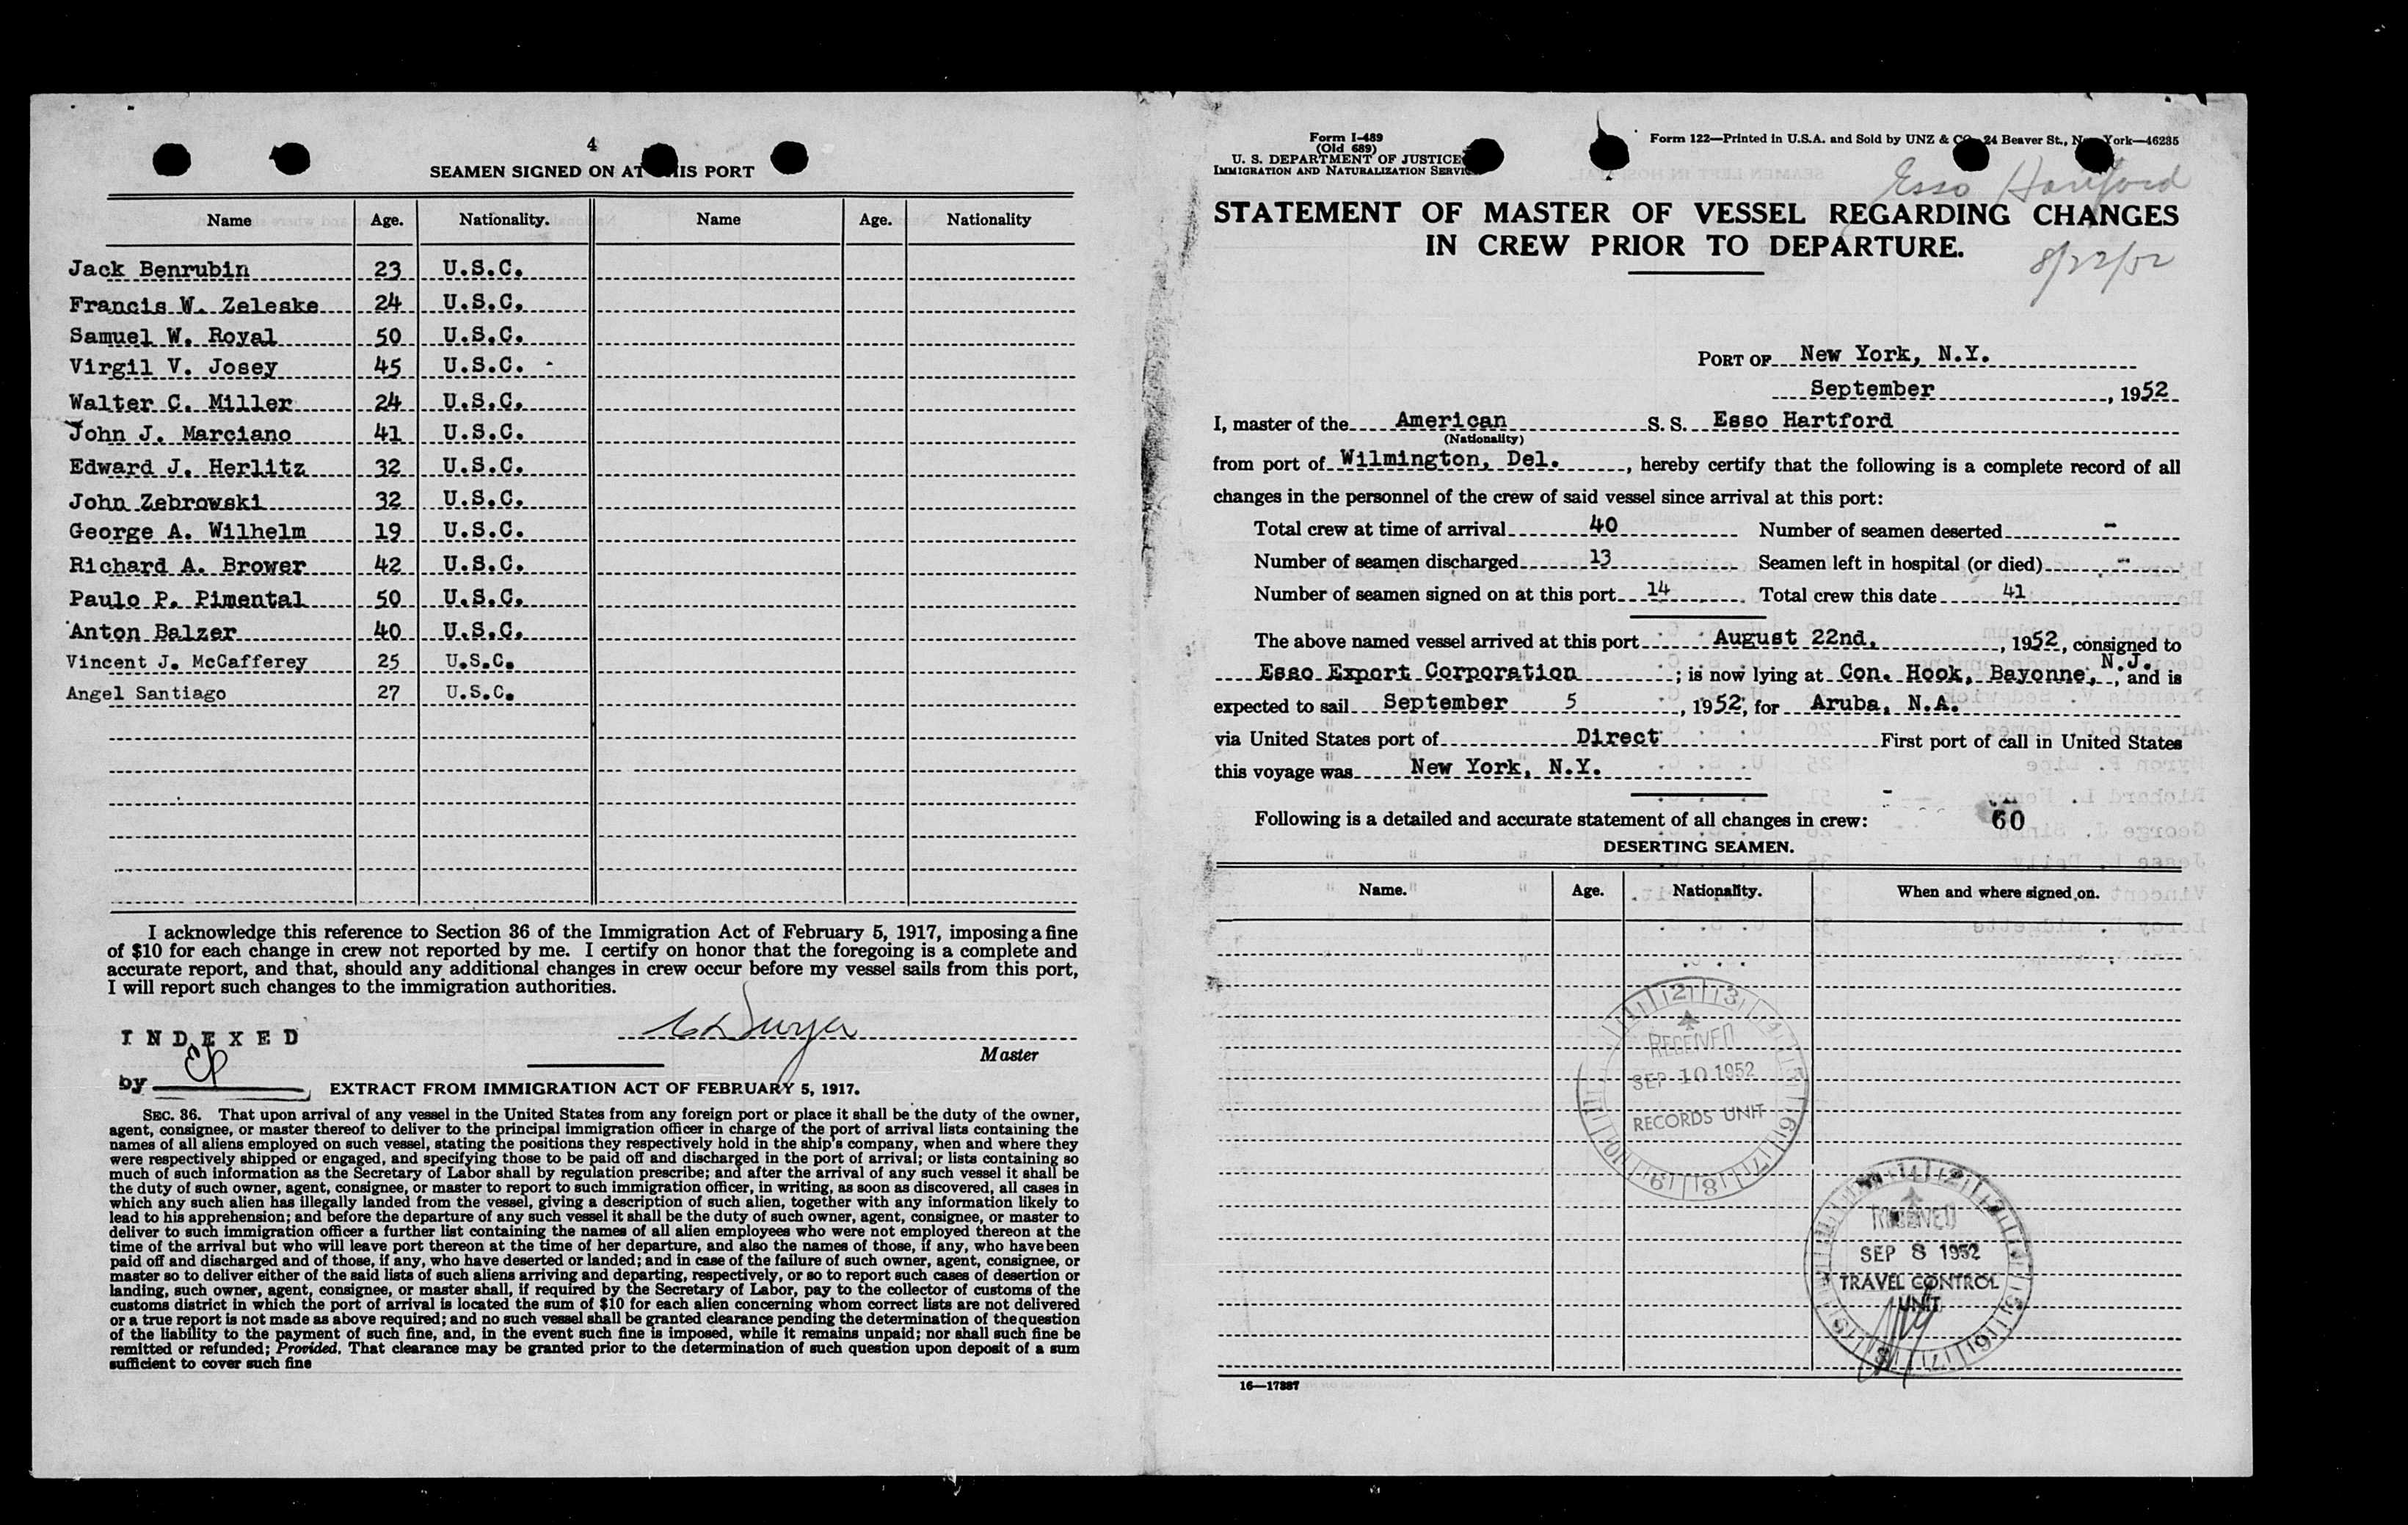 4
SEAMEN SIGNED ON AT THIS PORT
Name Age. Nationality. Name Age. Nationality
Jack Benrubin 23 U.S.C.
Francis W. Zeleske 24 U.S.C.
Samuel W. Royal 50 U.S.C.
Virgil V. Josey 45 U.S.C.
Walter C. Miller 24 U.S.C.
John J. Marciano 41 U.S.C.
Edward J. Herlitz 32 U.S.C.
John Zebrowski 32 U.S.C.
George A. Wilhelm 19 U.S.C.
Richard A. Brower 42 U.S.C.
Paulo P. Pimental 50 U.S.C.
Anton Balzer 40 U.S.C.
Vincent J. McCafferey 25 U.S.C.
Angel Santiago 27 U.S.C.
I acknowledge this reference to Section 36 of the Immigration Act of February 5, 1917, imposing a fine
of $10 for each change in crew not reported by me. I certify on honor that the foregoing is a complete and
accurate report, and that, should any additional changes in crew occur before my vessel sails from this port,
I will report such changes to the immigration authorities.
INDEXED
Master
by EP
EXTRACT FROM IMMIGRATION ACT OF FEBRUARY 5, 1917.
SEC. 36. That upon arrival of any vessel in the United States from any foreign port or place it shall be the duty of the owner,
agent, consignee, or master thereof to deliver to the principal immigration officer in charge of the port of arrival lists containing the
names of all aliens employed on such vessel, stating the positions they respectively hold in the ship's company, when and where they
were respectively shipped or engaged, and specifying those to be paid off and discharged in the port of arrival; or lists containing so
much of such information as the Secretary of Labor shall by regulation prescribe; and after the arrival of any such vessel it shall be
the duty of such owner, agent, consignee, or master to report to such immigration officer, in writing, as soon as discovered, all cases in
which any such alien has illegally landed from the vessel, giving a description of such alien, together with any information likely to
lead to his apprehension; and before the departure of any such vessel it shall be the duty of such owner, agent, consignee, or master to
deliver to such immigration officer a further list containing the names of all alien employees who were not employed thereon at the
time of the arrival but who will leave port thereon at the time of her departure, and also the names of those, if any, who have been
paid off and discharged and of those, if any, who have deserted or landed; and in case of the failure of such owner, agent, consignee, or
master so to deliver either of the said lists of such aliens arriving and departing, respectively, or so to report such cases of desertion or
landing, such owner, agent, consignee, or master shall, if required by the Secretary of Labor, pay to the collector of customs of the
customs district in which the port of arrival is located the sum of $10 for each alien concerning whom correct lists are not delivered
or a true report is not made as above required; and no such vessel shall be granted clearance pending the determination of the question
of the liability to the payment of such fine, and, in the event such fine is imposed, while it remains unpaid; nor shall such fine be
remitted or refunded; Provided. That clearance may be granted prior to the determination of such question upon deposit of a sum
sufficient to cover such fine
Form I-489
(Old 689)
U. S. DEPARTMENT OF JUSTICE
IMMIGRATION AND NATURALIZATION SERVICE
Form 122—Printed in U.S.A. and Sold by UNZ & CO. 24 Beaver St., New York—46235
Esso Hartford
STATEMENT OF MASTER OF VESSEL REGARDING CHANGES
IN CREW PRIOR TO DEPARTURE.
8/22/52
PORT OF New York, N.Y.
September, 1952
I, master of the American S. S. Esso Hartford
(Nationality)
from port of Wilmington, Del., hereby certify that the following is a complete record of all
changes in the personnel of the crew of said vessel since arrival at this port:
Total crew at time of arrival 40 Number of seamen deserted -
Number of seamen discharged 13 Seamen left in hospital (or died) -
Number of seamen signed on at this port 14 Total crew this date 41
The above named vessel arrived at this port August 22nd, 1952, consigned to
Esso Export Corporation; is now lying at Con. Hook, Bayonne, N.J., and is
expected to sail September 5, 1952, for Aruba, N.A.
via United States port of Direct First port of call in United States
this voyage was New York, N.Y.
Following is a detailed and accurate statement of all changes in crew: 60
DESERTING SEAMEN.
Name. Age. Nationality. When and where signed on.
RECEIVED
SEP 10 1952
RECORDS UNIT
RECEIVED
SEP 8 1952
TRAVEL CONTROL
UNIT
16—17887